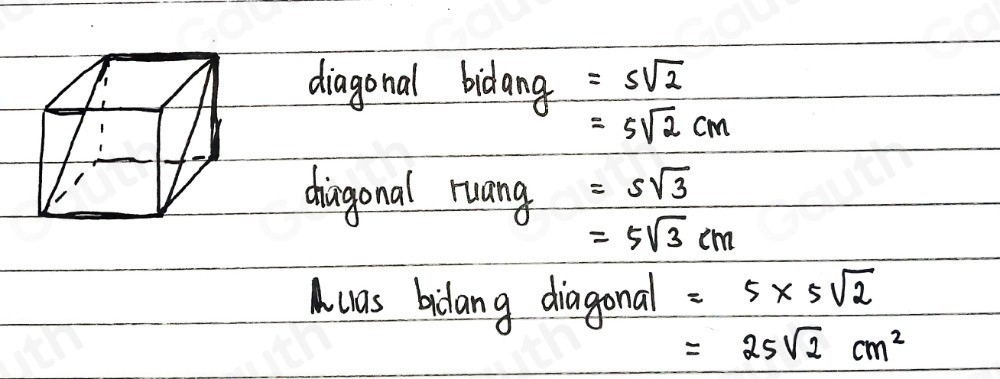 diagonal bidang = s√2
= 5√2 cm
diagonal ruang = s√3
= 5√3 cm
Luas bidang diagonal = 5 × 5√2
= 25√2 cm²